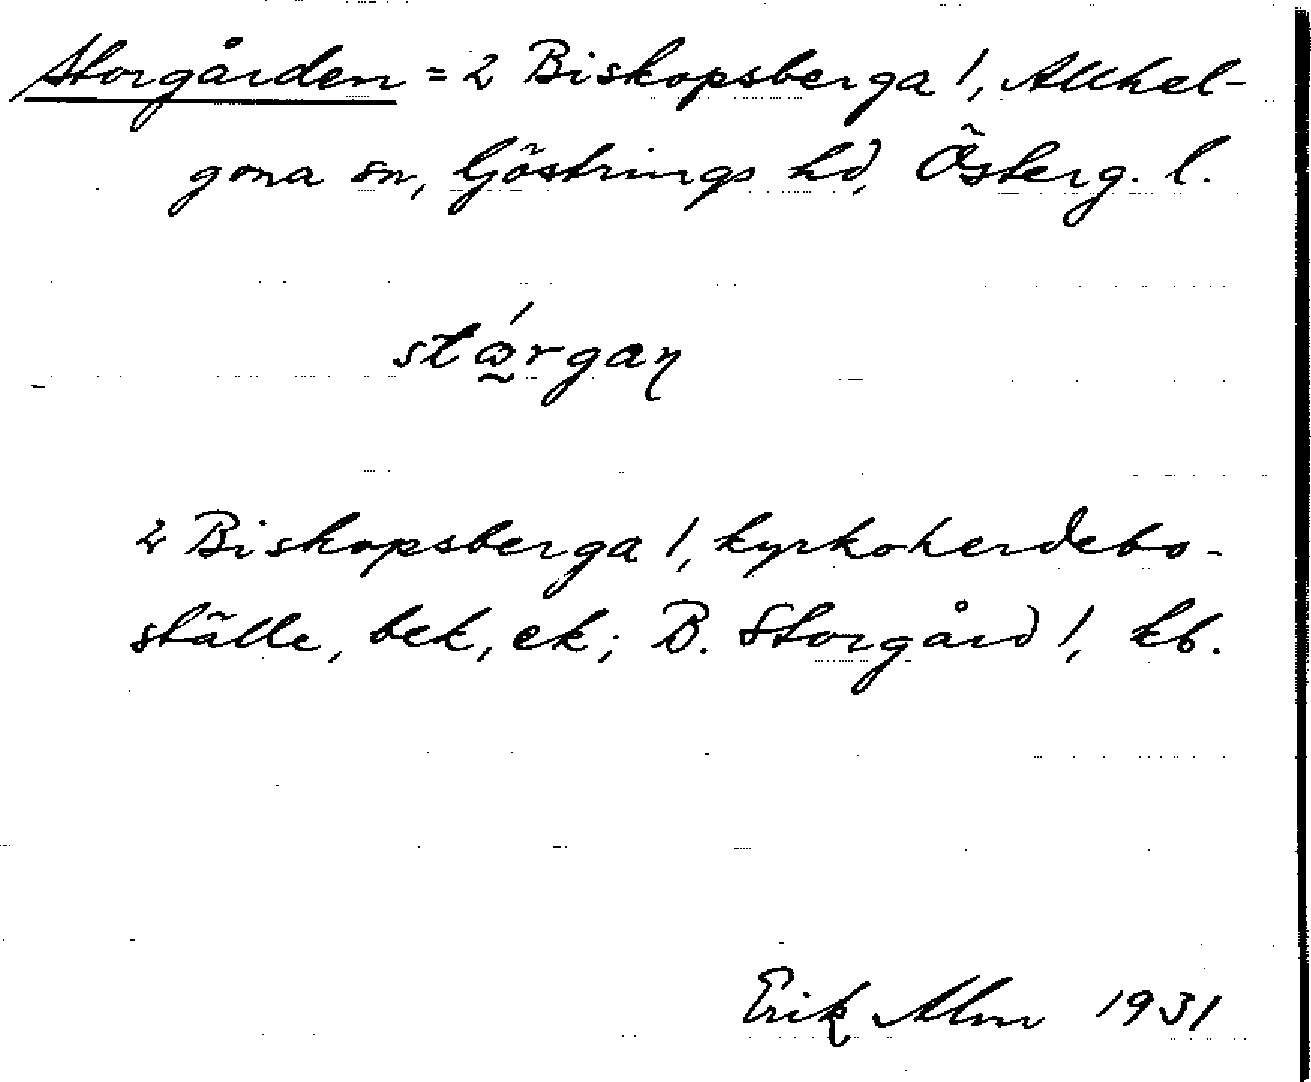 Storgården = 2 Biskopsberga !, Allhel-
gona sn, Göstrings hd, Österg. l.
2 Biskopsberga !, kyrkoherdebo-
ställe, bek, ek; B. Storgård !, kb.
Erik Alm 1931